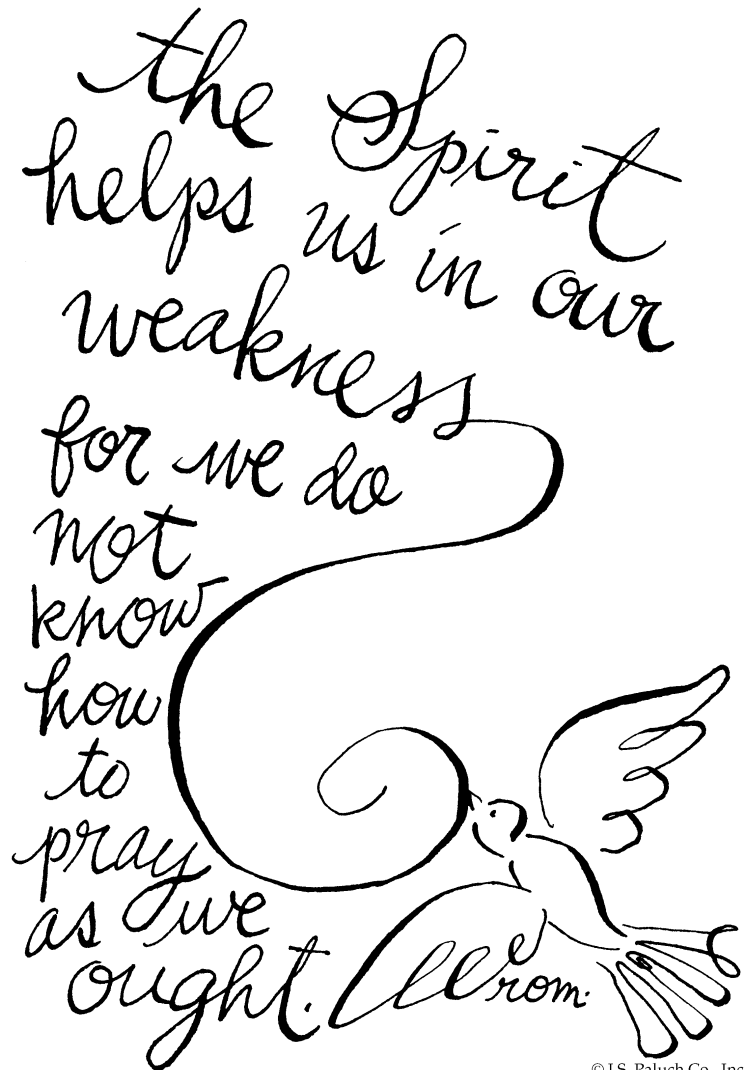 the Spirit
helps us in our
weakness
for we do
not
know
how
to
pray
as we
ought.
rom.
© J.S. Paluch Co., Inc.